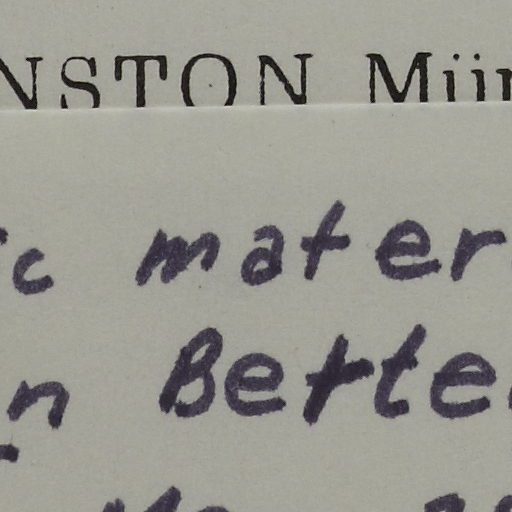 NSTON Mün
c mater
n Bette